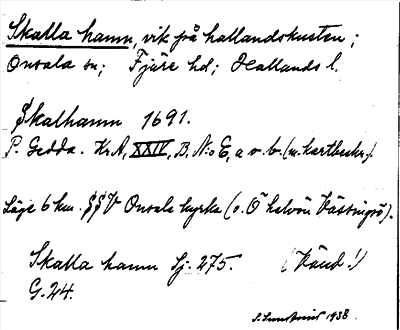 Skalla hamn, vik på hallandskusten;
Onsala sn; Fjäre hd; Hallands l.
Skalhamn 1691.
P. Gedda. Kr.A, XXIV, B, N:o E, a o. b. (m. kartbeskr.)
Läge 6 km. SSV Onsala kyrka (v. Ö halvön Hässingsö).
Skalla hamn Sj. 275. (Känd!)
G. 24.
1938